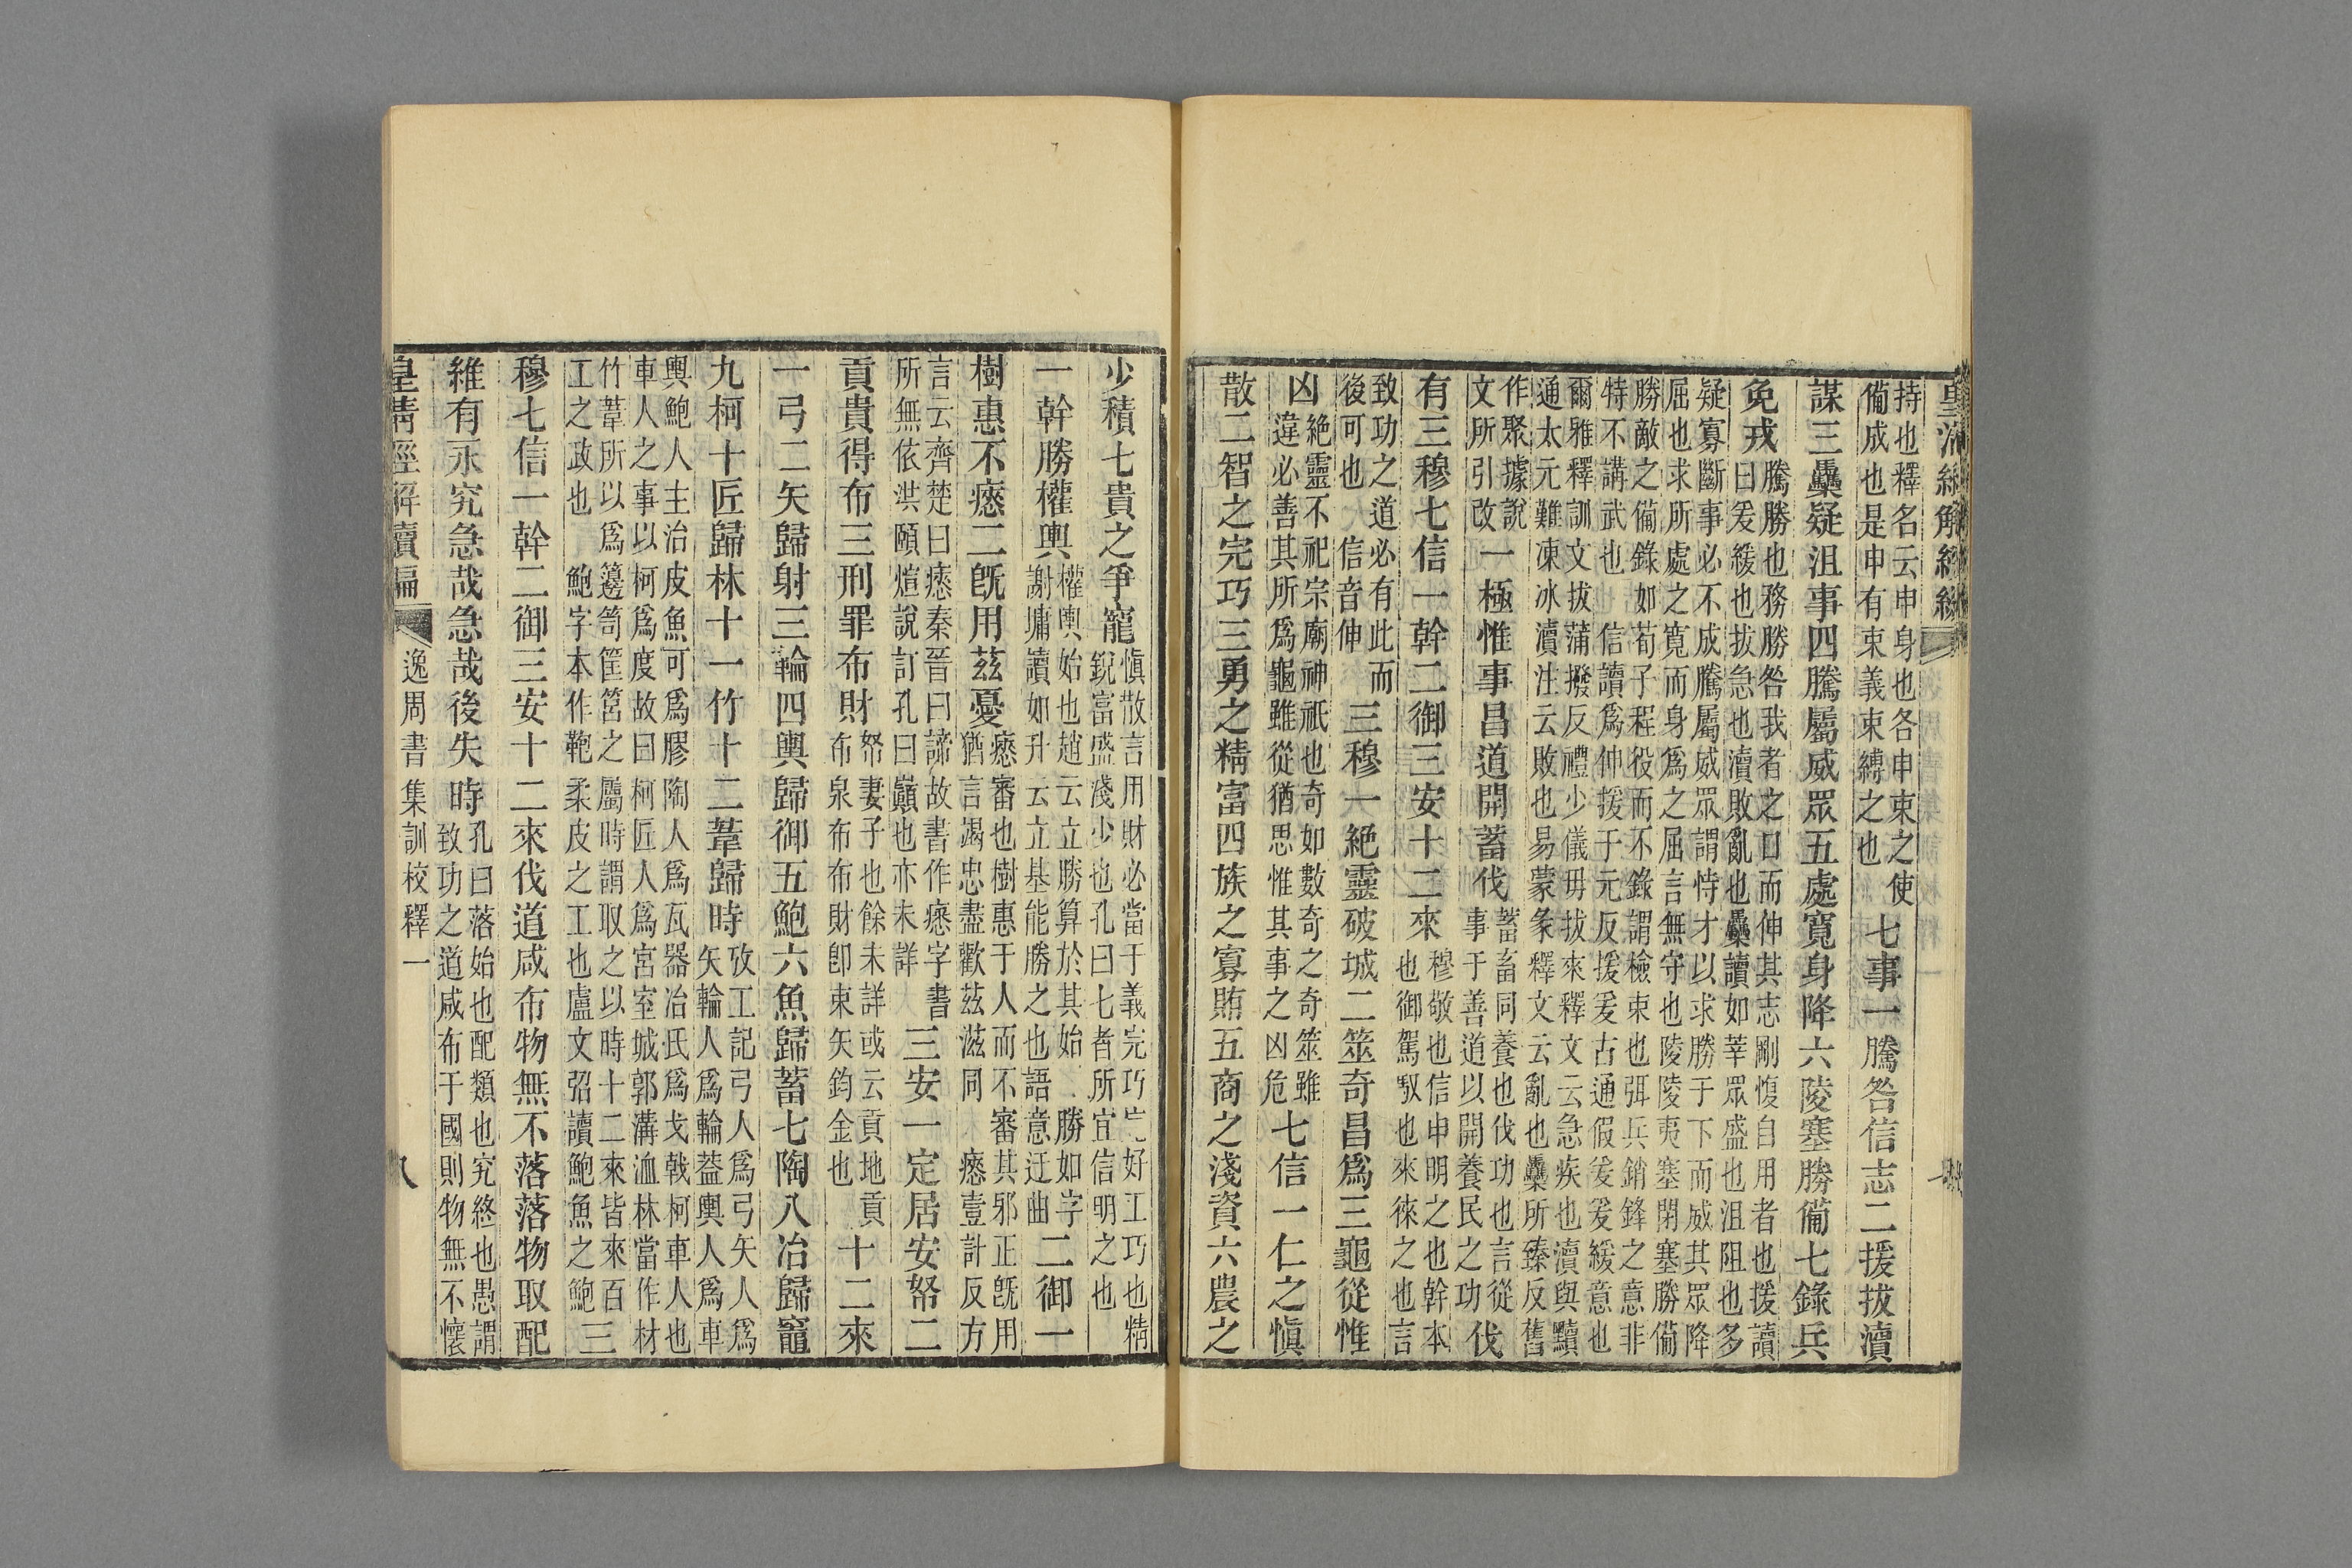 持也釋名云申身也各申束之使
僃成也是申有束義束縛之也
七事一騰咎信志二援拔瀆
謀三㬪疑沮事四騰屬威眾五處寬身降六陵塞勝僃七錄兵
免戎
騰勝也務勝咎我者之口而伸其志剛愎自用者也援讀
曰爰緩也拔急也瀆敗亂也㬪讀如莘眾盛也沮阻也多
疑寡斷事必不成騰屬威眾謂恃才以求勝于下而威其眾降
屈也求所處之寬而身爲之屈言無守也陵夷塞閉塞勝僃
勝敵之僃錄如荀子程役而不錄謂檢束也弭兵銷鋒之意非
特不講武也 信讀爲伸援于元反援爰古通假爰爰緩意也
爾雅釋訓文拔蒲撥反禮少儀毋拔來釋文云急疾也瀆與黷
通太元難凍冰瀆注云敗也易蒙彖釋文云亂也㬪所臻反舊
作聚據說
文所引改
一極惟事昌道開蓄伐
蓄畜同養也伐功也言從
事于善道以開養民之功
伐
有三穆七信一幹二御三安十二來
穆敬也信申明之也幹本
也御駕馭也來徠之也言
致功之道必有此而
後可也 信音伸
三穆一絕靈破城二筮奇昌爲三龜從惟
凶
絕靈不祀宗廟神祇也奇如數奇之奇筮雖
違必善其所爲龜雖從猶思惟其事之凶危
七信一仁之愼
散二智之完巧三勇之精富四族之寡賄五商之淺資六農之
少積七貴之爭寵
愼散言用財必當于義完巧完好工巧也精
銳富盛淺少也孔曰七者所宜信明之也
一幹勝權輿
權輿始也趙云立勝算於其始 勝如字
謝墉讀如升云立基能勝之也語意迂曲
二御一
樹惠不瘱二旣用茲憂
瘱審也樹惠于人而不審其邪正旣用
猶言竭忠盡歡茲滋同 瘱壹計反方
言云齊楚曰瘱秦晉曰諦故書作㾾字書
所無依洪頤煊說訂孔曰巓也亦未詳
三安一定居安帑二
貢貴得布三刑罪布財
帑妻子也餘未詳或云貢地貢
布泉布布財卽束矢鈞金也
十二來
一弓二矢歸射三輪四輿歸御五鮑六魚歸蓄七陶八冶歸竈
九柯十匠歸林十一竹十二葦歸時
攷工記弓人爲弓矢人爲
矢輪人爲輪蓋輿人爲車
輿鮑人主治皮魚可爲膠陶人爲瓦器冶氏爲戈戟柯車人也
車人之事以柯爲度故曰柯匠人爲宮室城郭溝洫林當作材
竹葦所以爲籩笥筐筥之屬時謂取之以時十二來皆來百
工之政也 鮑字本作鞄柔皮之工也盧文弨讀鮑魚之鮑
三
穆七信一幹二御三安十二來伐道咸布物無不落落物取配
維有永究急哉急哉後失時
孔曰落始也配類也究終也愚謂
致功之道咸布于國則物無不懷
皇清經解續編
逸周書集訓校釋一
八